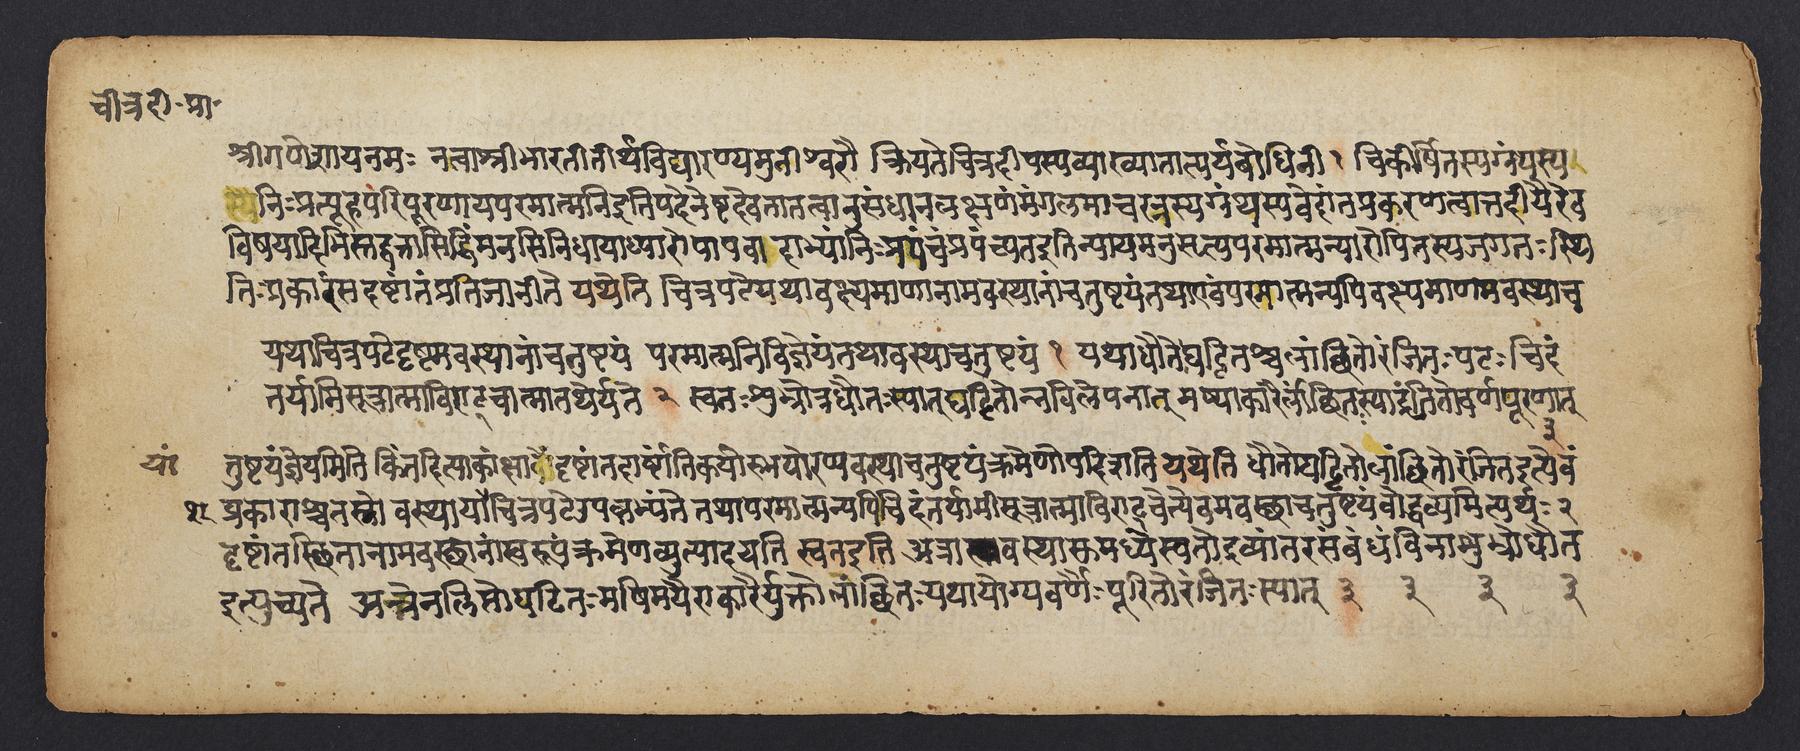 चीत्रदी-प्रा-
श्रीगणेशायनमः नत्वाश्रीभारतीतीर्थविद्यारण्यमुनीश्वरौ क्रियतेचित्रदीपस्यव्याख्यातात्पर्यबोधिनी १ चिकीर्षितस्यग्रंथस्य
निःप्रत्यूहपरिपूरणायपरमात्मनिइतिपदेनेष्टदेवतातत्वानुसंधानलक्षणंमंगलमाचरन्नस्यग्रंथस्यवेदांतप्रकरणत्वात्तदीयैरेव
विषयादिभिस्तद्वत्तासिद्धिंमनसिनिधायाध्यारोपापवादाभ्यांनिःप्रपंचंप्रपंच्यतइतिन्यायमनुसृत्यपरमात्मन्यारोपितस्यजगतःस्थि
तिःप्रकारंसदृष्टांतंप्रतिजानीते यथेति चित्रपटेयथावक्ष्यमाणानामवस्थानांचतुष्टयंतथाएवंपरमात्मन्यपिवक्ष्यमाणमवस्थाच
यथाचित्रपटेदृष्टमवस्थानांचतुष्टयं परमात्मनिविज्ञेयंतथावस्थाचतुष्टयं १ यथाधौतोघट्टितश्चलांछितोरंजितःपटः चिदं
तर्यामिसूत्रात्माविराट्चात्मातथेर्यते २ स्वतःशुभ्रोत्रधौतःस्यात्घट्टितोन्नविलेपनात् मष्याकारैर्लांछितःस्याद्रंजितोवर्णपूरणात्
३
यां
तुष्टयंज्ञेयमिति किंतदित्याकांक्षायांदृष्टांतदार्ष्टांतिकयोरुभयोरप्यवस्थाचतुष्टयंक्रमेणोपदिशति यथेति धौतोघट्टितोलांछितोरंजितइत्येवं
प्रकाराश्चतस्रोवस्थायथाचित्रपटेउपलभ्यंते तथापरमात्मन्यपिचिदंतर्यामीसूत्रात्माविराट्चेत्येवमवस्छाचतुष्टयंबोद्धव्यमित्यर्थः २
दृष्टांतस्छितानामवस्छानांस्वरूपंक्रमेणव्युत्पादयति स्वतइति अत्रावस्थासुमध्येस्वतोद्रव्यांतरसंबंधंविनाशुभ्रोधौत
इत्युच्यते अन्नेनलिप्तोघटितःमषिमयैराकारैर्युक्तोलांछितःयथायोग्यवर्णैःपूरितोरंजितःस्यात् ३ ३ ३ ३